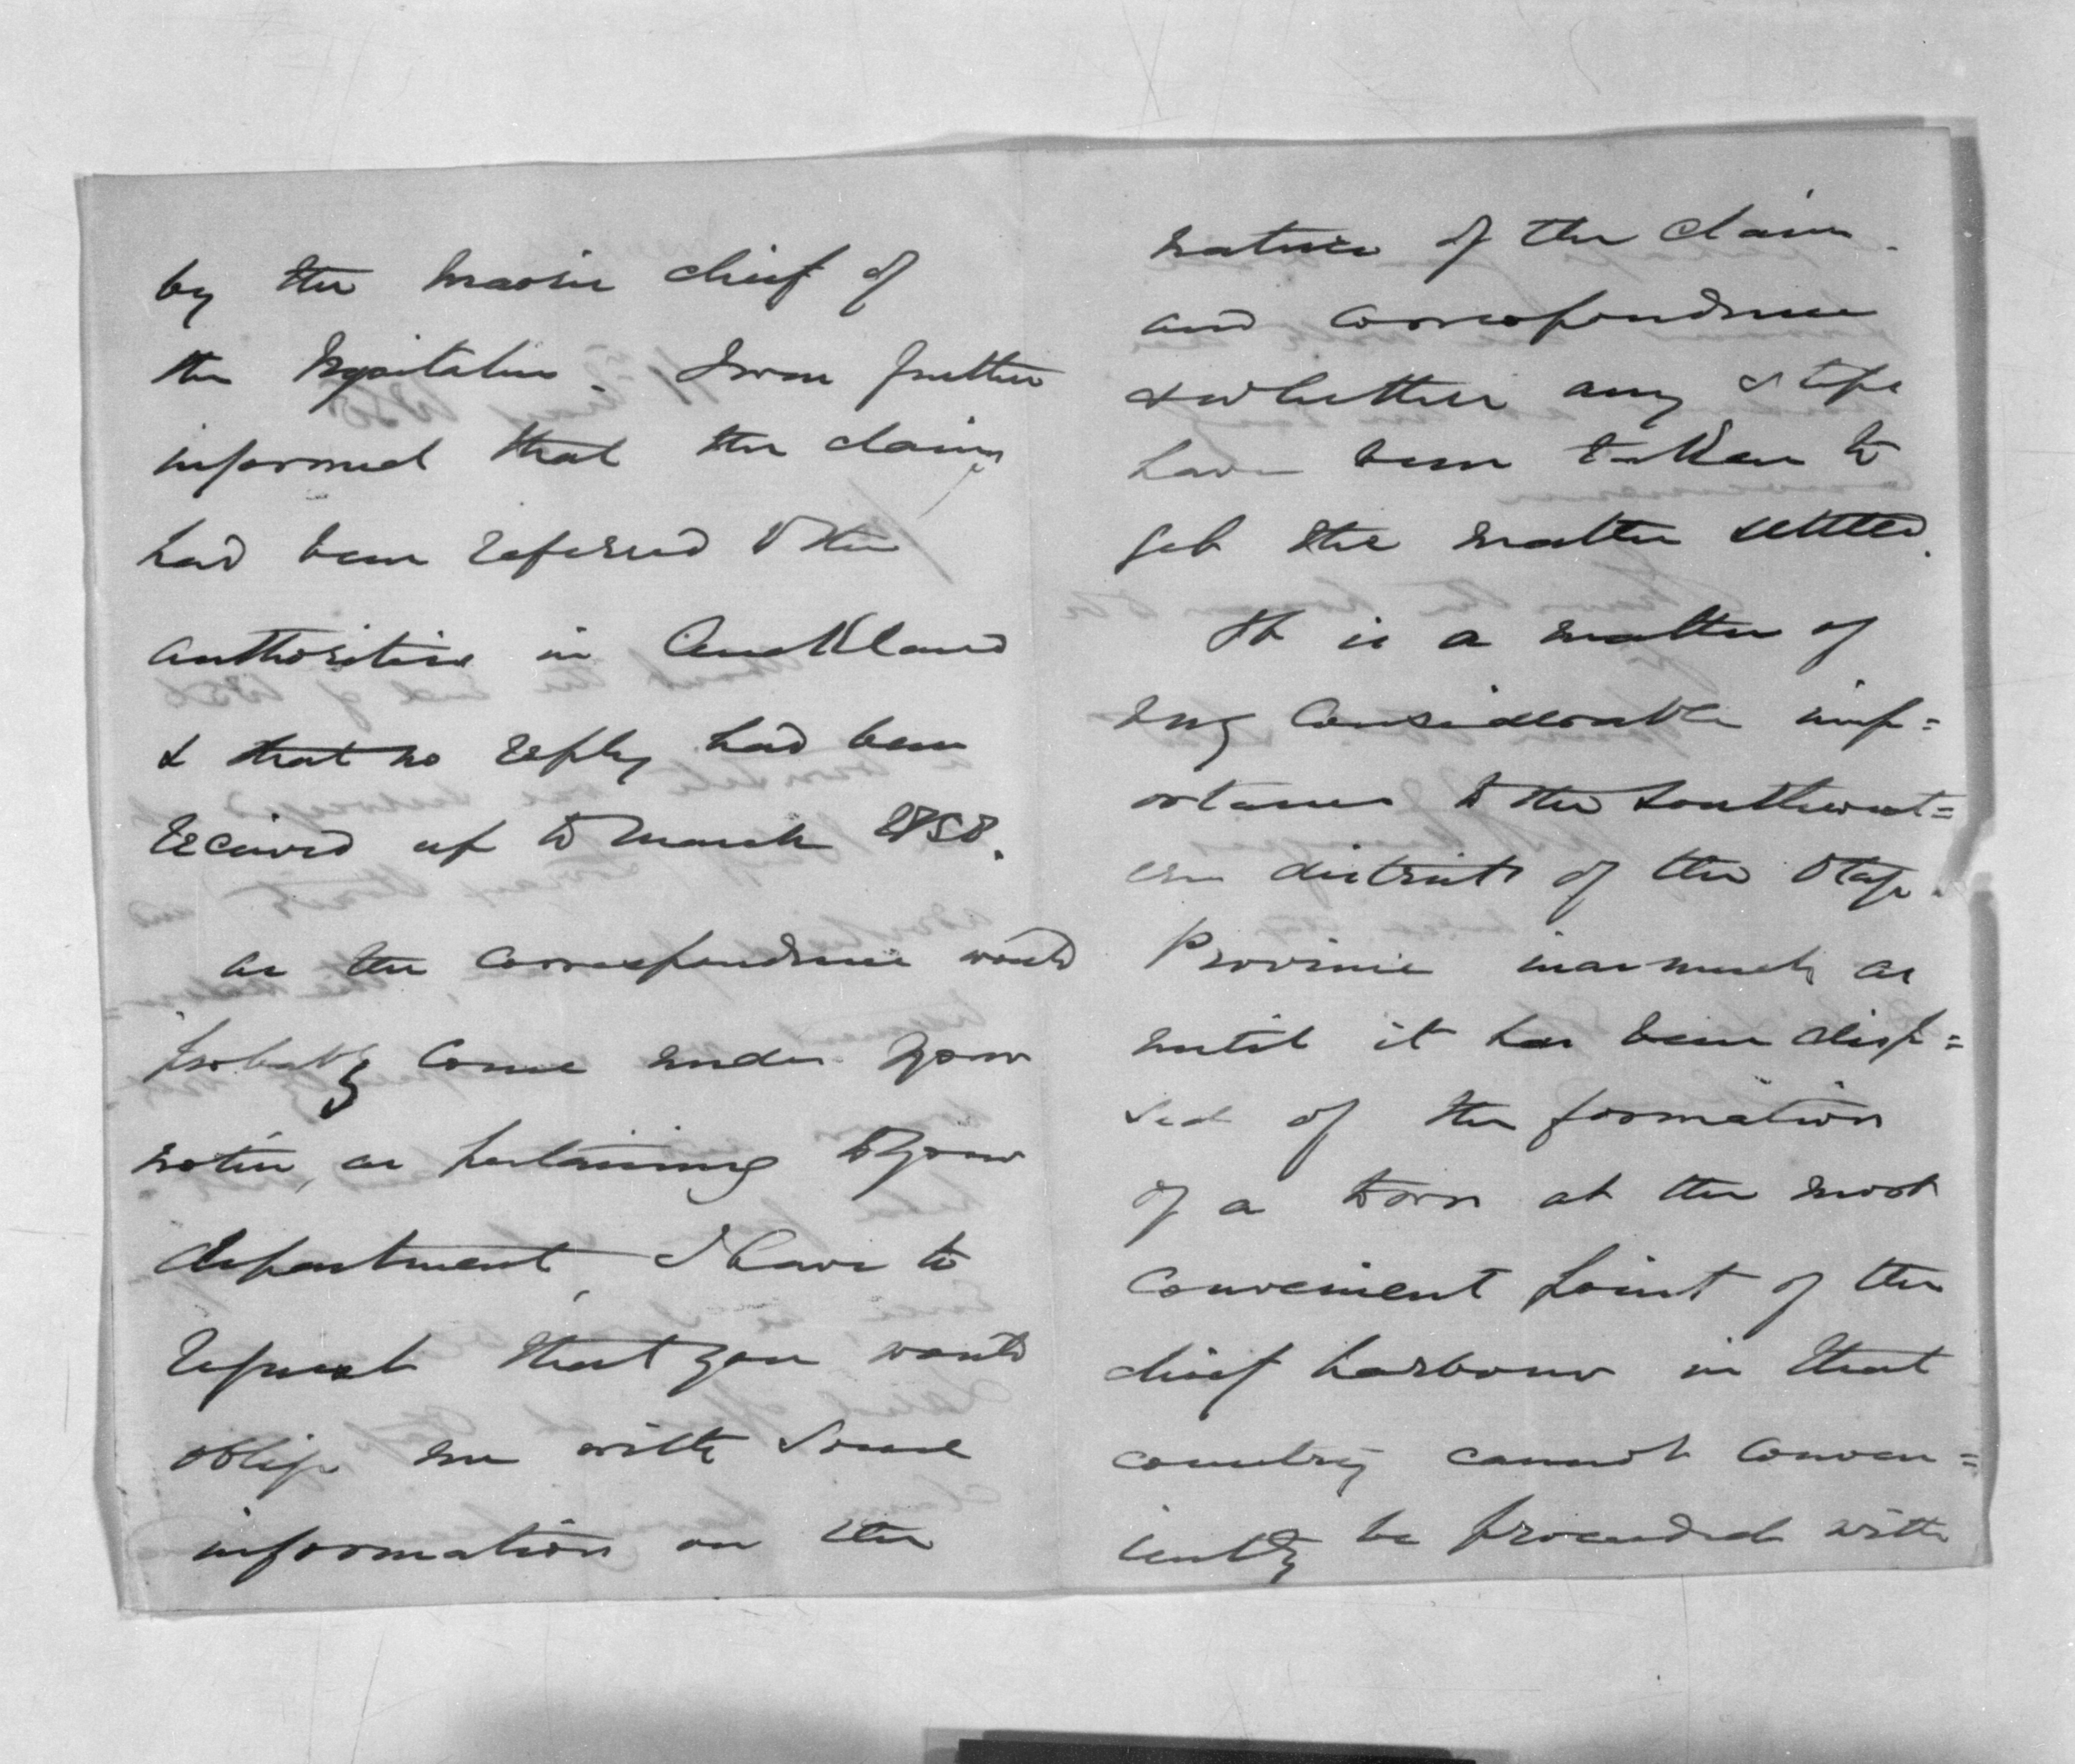 by the Maorie chief of
the Ngaitahu. I was further
informed that the claim
had been referred to the
authorities in Auckland
& that no reply had been
received up to March 1858.
As the correspondence would
probably come under your
notice, as pertaining to your
department, I have to
request that you would
oblige me with some
information on the
nature of the claim
and correspondence
& whether any steps
have been taken to
get the matter settled.
It is a matter of
very considerable imp=
ortance to the southwest=
ern districts of the Otago
Province inasmuch as
until it has been disp=
sed of the formation
of a town at the most
convenient point of the
chief harbour in that
country cannot conven=
iently be proceeded with